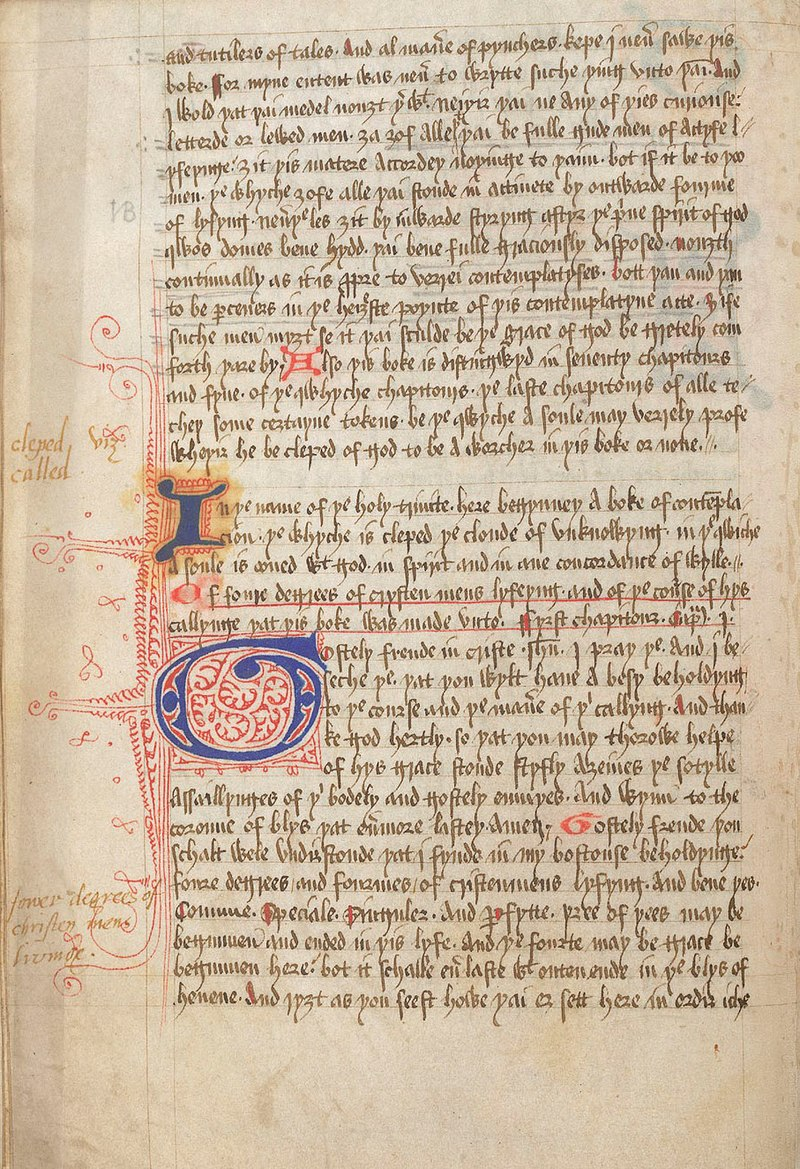 and tutilers of tales. And al man̄e of pynchers. kepe i neu̅ sawe yis
boke. For myne entent was neu̅ to wrytte suche ying vnto yai̅. And
I wold yat yai medel nouȝt yͬ wͭ. neiyir yai ne any of yies curiouse
letterde or lewed men. ȝa ȝof alle yai be fulle gude men of actyfe l
yfeyinge. ȝit yis matere accordey noyinge to yaim. bot if it be to yoo
men. ye whyche ȝofe alle yai stonde in actiuete by outwarde fourme
of lyfyng. neu̅yeles ȝit by inwarde styryng aftyr ye p̱ue spirit of god
qwos domes bene hydd. yai bene fulle graciously disposed. nouȝth
continually as it is ꝓpre to verrei contemplatyfes. bott yan and yan
to be ꝑceners in ye heiȝste poyncte of yis contemplatyue acte. ȝife
suche men myȝt se it yai sculde be ye grace of god be gretely com
forth yare by. Also yis boke is distingwyd in seuenty chapitours
and fyue. of ye qwhyche chapitours. ye laste chapitours of alle te
chey some certayne tokens. be ye qwyche a soule may verrely profe
wheyir he be cleped of god to be a worcher in yis boke or none.
cleped viz
called
In ye name of ye holy trinite. here begynney a boke of contēpla
cion. ye whyche is cleped ye cloude of vnknowyng. in ye qwiche
a soule is oned wͭ god. in spirit and in ane concordance of wylle.
Of foure degrees of crysten mens lyfeyng. and of ye course of hys
callynge yat yis boke was made vnto. Fyrst chapitour. Cap̄m. j.
Gostely frende in criste ihū. I pray ye. And i be
seche ye. yat you wylt haue a besy beholdyng
to ye course and ye man̄e of yͥ callyng. And than
ke god hertly. so yat you may thorowe helpe
of hys grace stonde styfly aȝeines ye sotylle
assaillynges of yͥ bodely and gostely enmyes. And wynn to the
coroune of blys yat eu̅more lastey. Amen. Gostely frende you
schalt wele vndirstonde yat i fynde in my bostouse beholdynge
foure degrees and fourmes of cristenmens lyfyng. And bene yes.
Comune. Speciale. Singuler. And ꝑfytte. yree of yees may be
begunnen and ended in yis lyfe. And ye fourte may be grace be
begunnen here. bot it schalle eu̅ laste wͭ outen ende in ye blys of
heuene. And ryȝt as you seest howe yai er sett here in ordir iche
fower degrees of
christen mens
livinge.